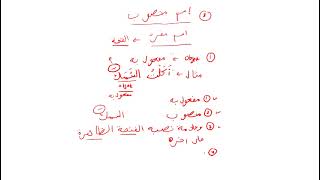 إسم منصوب
اسم معرب ← الفتحة
① مفعول به ؟
مثال ← أكلت السمك
مفعول
① مفعول به
② منصوب السمك
③ وعلامة نصبه الفتحة الظاهرة
على آخره
④